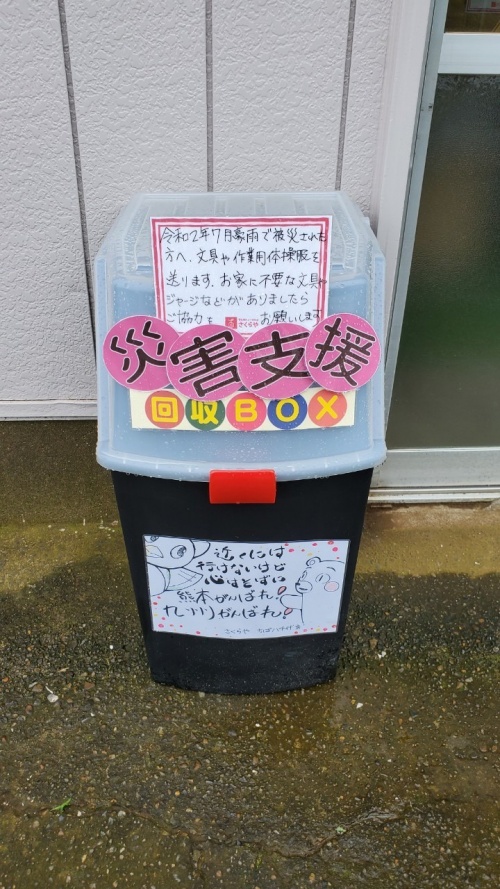 令和2年7月豪雨で被災された
方へ、文具や作業用体操服を
送ります。お家に不要な文具や
ジャージなどがありましたら
ご協力を さくらや お願いします
災害支援
回収BOX
近くには
行けないけど
心はとずに
熊本がんばれ!
九州がんばれ!
さくらや